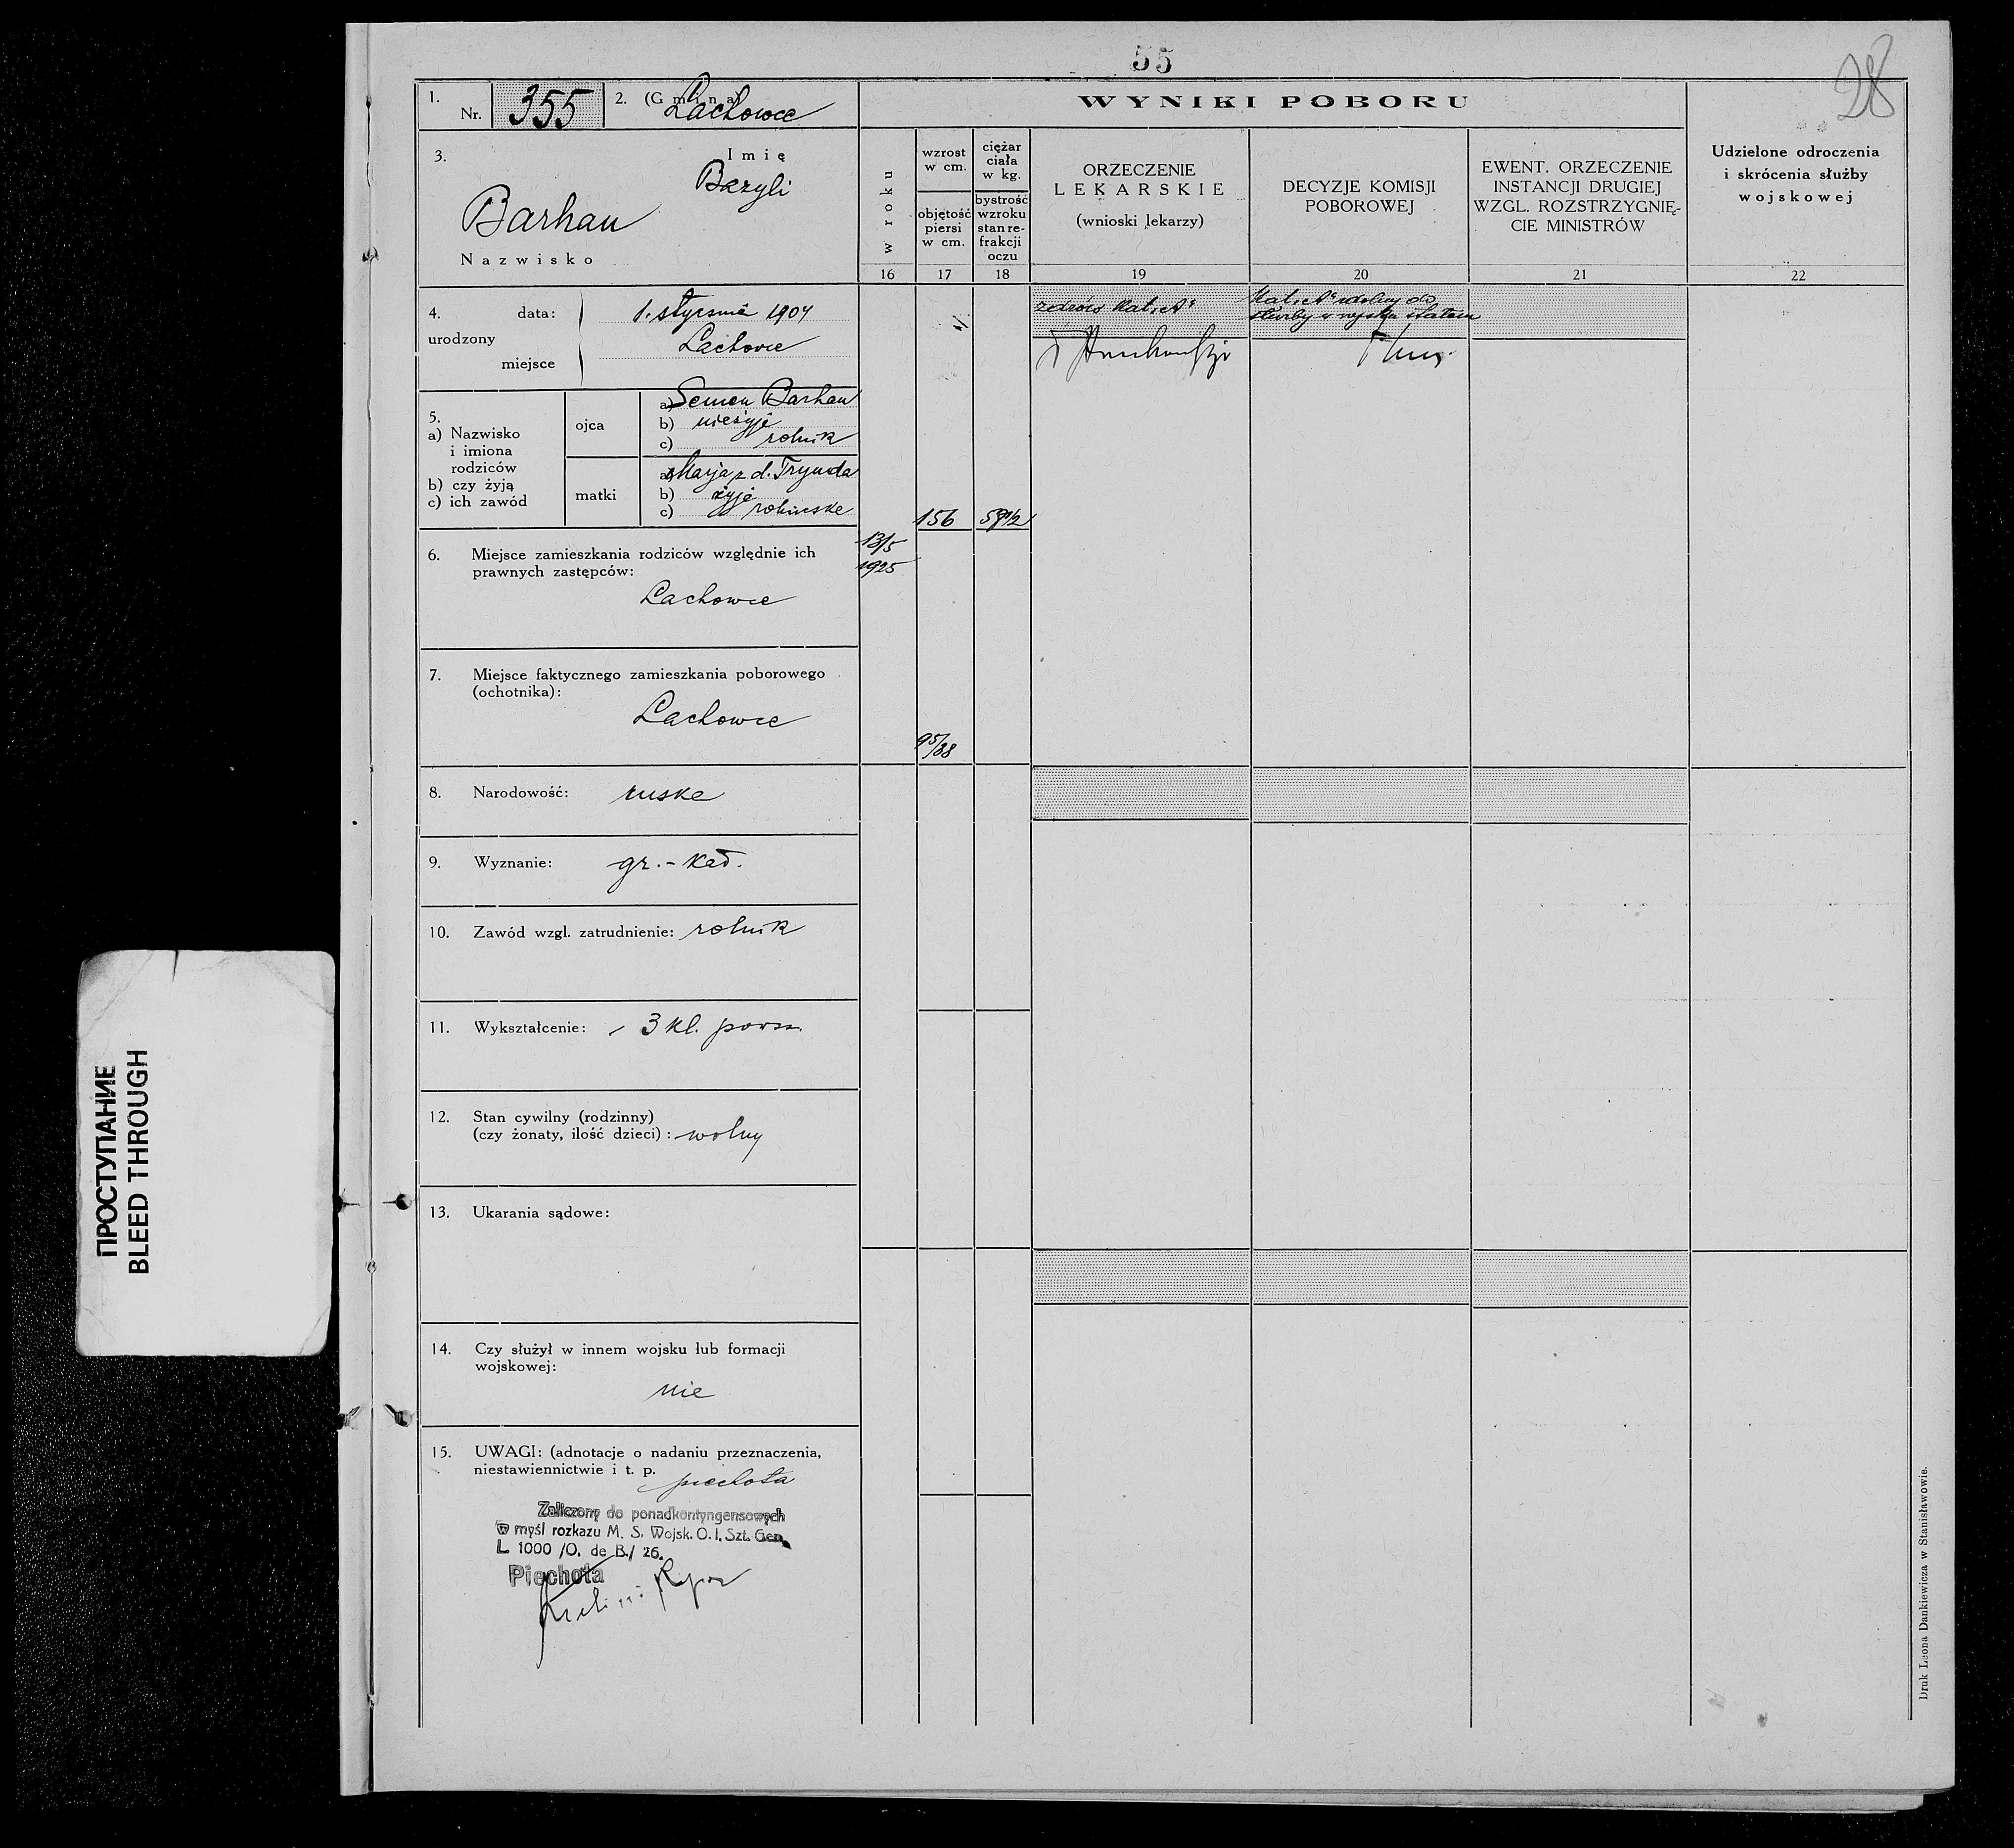 55
28
1. Nr. 355
2. (Gmina) Lachowce
3. Imię
Bazyli
Barhan
Nazwisko
4. urodzony
data: 1. stycznia 1904
miejsce Lachowce
5.
a) Nazwisko
i imiona
rodziców
b) czy żyją
c) ich zawód
ojca
a) Semen Barhan
b) nieżyje
c) rolnik
matki
a) Marja z d. Trynda
b) żyje
c)
6. Miejsce zamieszkania rodziców względnie ich
prawnych zastępców:
Lachowce
7. Miejsce faktycznego zamieszkania poborowego
(ochotnika):
Lachowce
8. Narodowość: ruska
9. Wyznanie: gr.-kat.
10. Zawód wzgl. zatrudnienie: rolnik
11. Wykształcenie: 3 kl. powsz.
12. Stan cywilny (rodzinny)
(czy żonaty, ilość dzieci): wolny
13. Ukarania sądowe:
14. Czy służył w innem wojsku lub formacji
wojskowej:
nie
15. UWAGI: (adnotacje o nadaniu przeznaczenia,
niestawiennictwie i t. p.
piechota
Zaliczony do ponadkontyngensowych
w myśl rozkazu M. S. Wojsk. O. I. Szt. Gen.
L 1000 /O. de B./ 26.
Piechota
WYNIKI POBORU
w roku
wzrost
w cm.
objętość
piersi
w cm.
ciężar
ciała
w kg.
bystrość
wzroku
stan re-
frakcji
oczu
ORZECZENIE
LEKARSKIE
(wnioski lekarzy)
DECYZJE KOMISJI
POBOROWEJ
EWENT. ORZECZENIE
INSTANCJI DRUGIEJ
WZGL. ROZSTRZYGNIĘ-
CIE MINISTRÓW
Udzielone odroczenia
i skrócenia służby
wojskowej
16 17 18 19 20 21 22
zdrów Kat. „A"
Kat. „A" zdolny do
służby w wojsku stałem
156
13/5
1925
95/88
Druk Leona Dankiewicza w Stanisławowie.
ПРОСТУПАНИЕ
BLEED THROUGH